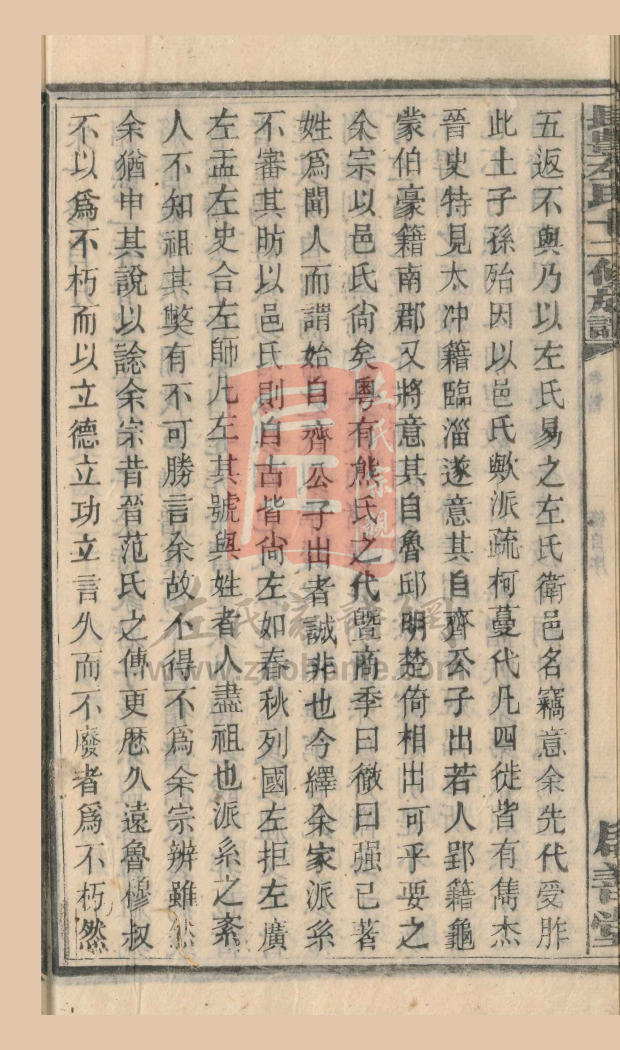 五返不與乃以左氏易之左氏衛邑名竊意余先代受胙
此土子孫殆因以邑氏歟派疏柯蔓代凡四徙皆有儁杰
晉史特見太冲籍臨淄遂意其自齊公子出若人郢籍龜
蒙伯豪籍南郡又將意其自魯邱明楚倚相出可乎要之
余宗以邑氏尙矣粵有熊氏之代曁商季曰徹曰强已著
姓爲聞人而謂始自齊公子出者誠非也今繹余家派系
不審其昉以邑氏則自古皆尙左如春秋列國左拒左廣
左盂左史合左師凡左其號與姓者人盡祖也派系之紊
人不知祖其獘有不可勝言余故不得不爲余宗辨雖然
余猶申其說以諗余宗昔晉范氏之傳更厯久遠魯穆叔
不以爲不朽而以立德立功立言久而不廢者爲不朽然
左氏宗親
左氏宗親網
www.zuohome.com